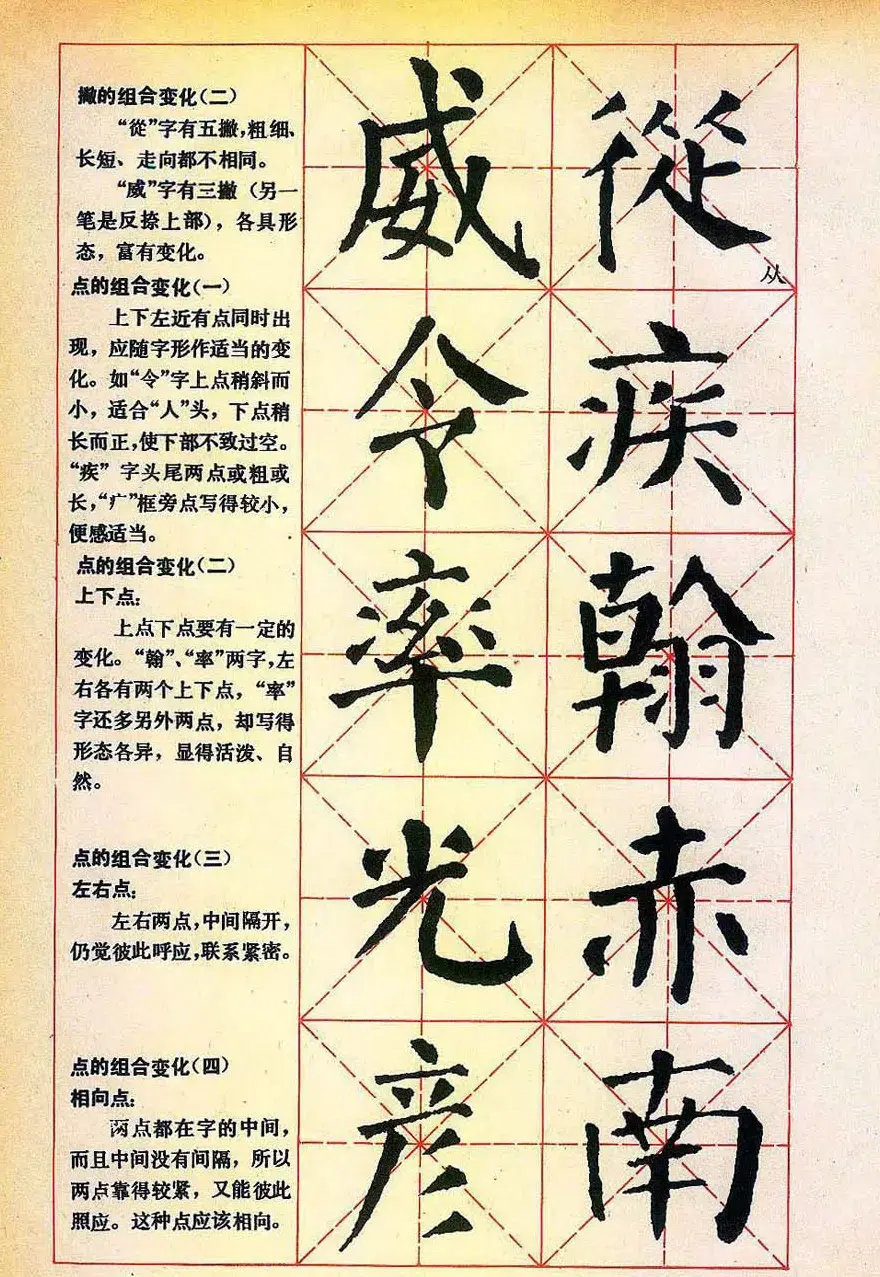 撇的组合变化(二)
“從”字有五撇,粗细、
长短、走向都不相同。
“威”字有三撇(另一
笔是反捺上部),各具形
态,富有变化。
点的组合变化(一)
上下左近有点同时出
现,应随字形作适当的变
化。如“令”字上点稍斜而
小,适合“人”头,下点稍
长而正,使下部不致过空。
“疾”字头尾两点或粗或
长,“疒”框旁点写得较小,
便感适当。
点的组合变化(二)
上下点:
上点下点要有一定的
变化。“翰”、“率”两字,左
右各有两个上下点,“率”
字还多另外两点,却写得
形态各异,显得活泼、自
然。
点的组合变化(三)
左右点:
左右两点,中间隔开,
仍觉彼此呼应,联系紧密。
点的组合变化(四)
相向点:
两点都在字的中间,
而且中间没有间隔,所以
两点靠得较紧,又能彼此
照应。这种点应该相向。
威 從
从
令 疾
率 翰
光 赤
彦 南